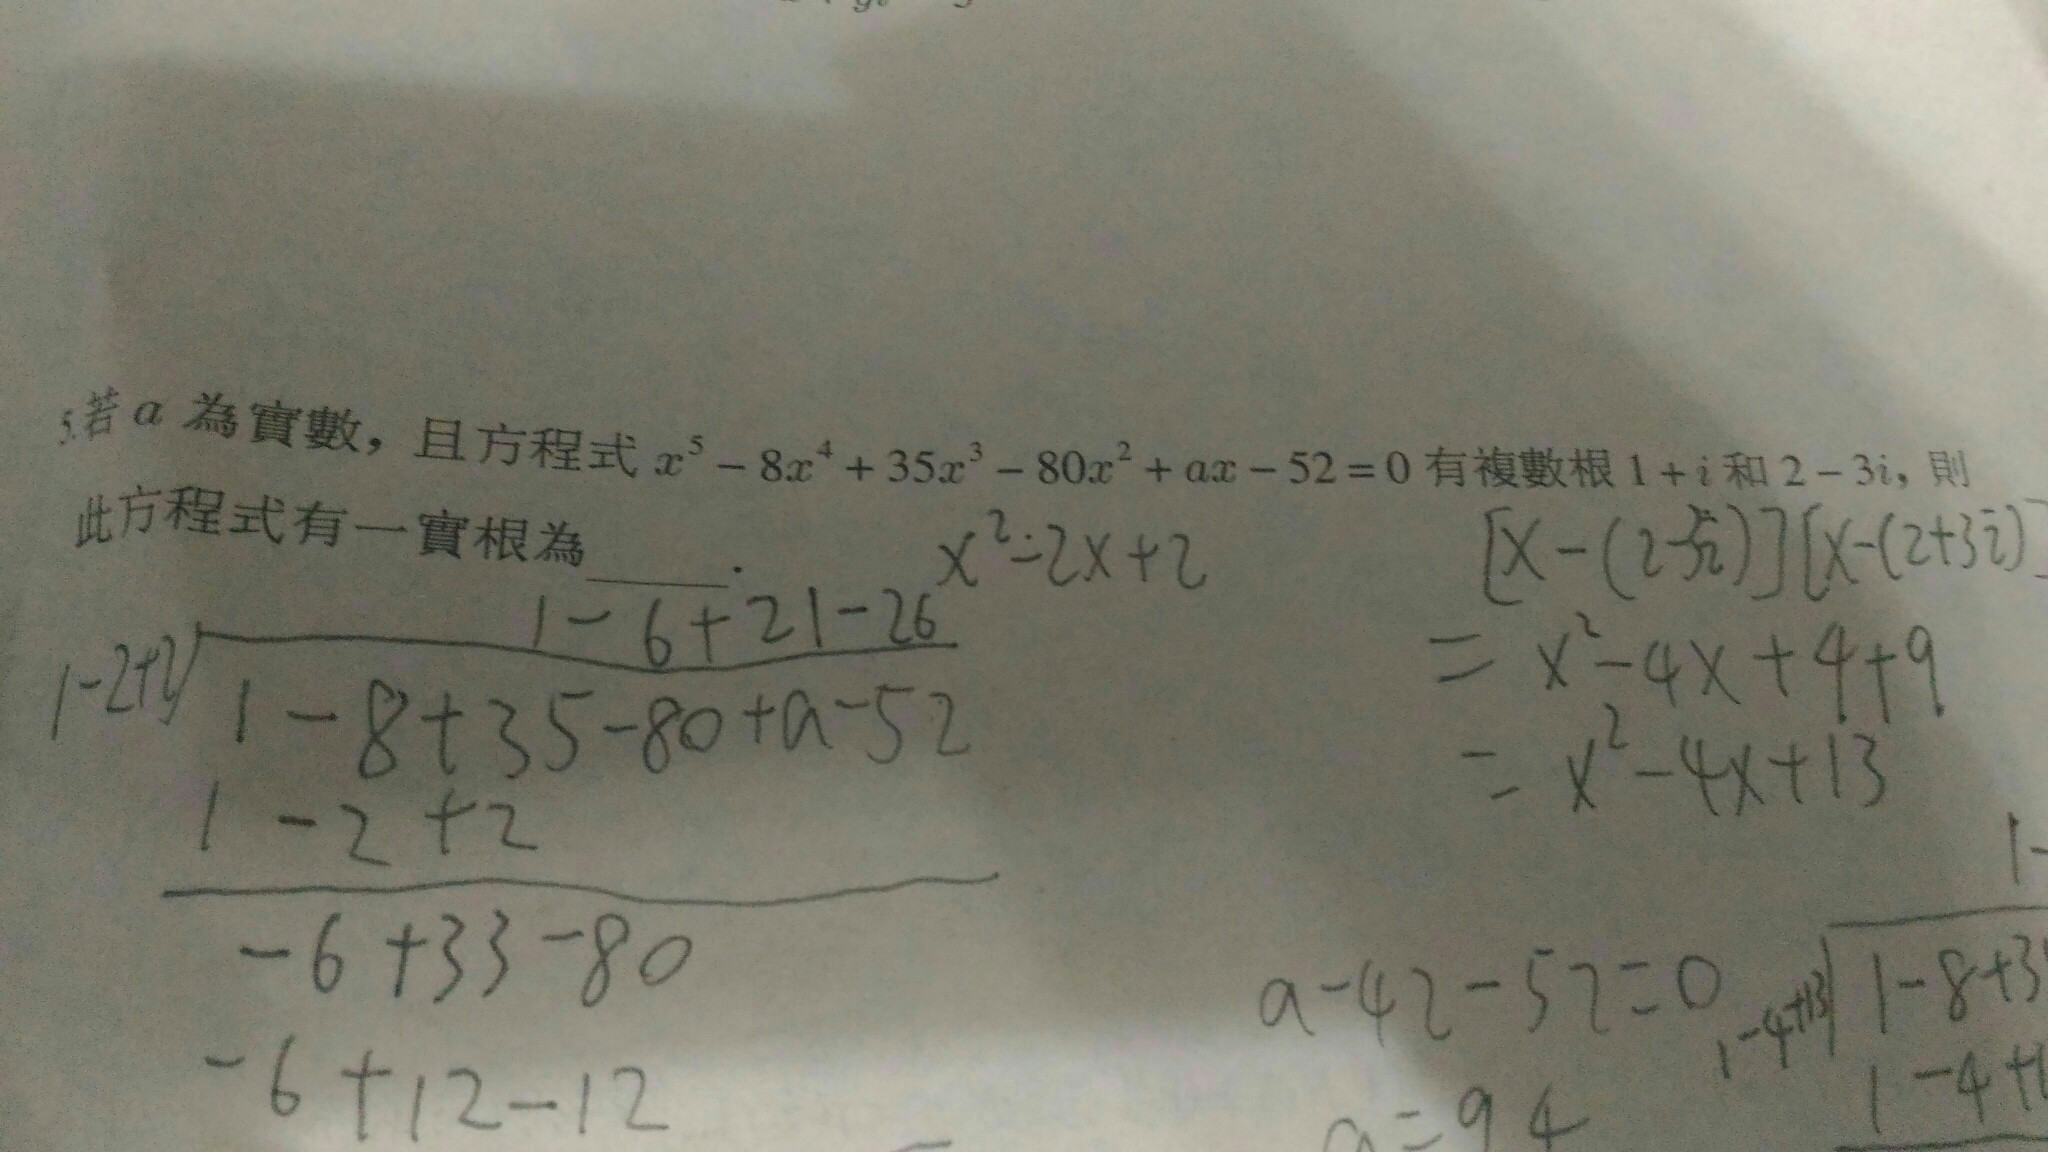 5.若 a 為實數，且方程式 x⁵ − 8x⁴ + 35x³ − 80x² + ax − 52 = 0 有複數根 1 + i 和 2 − 3i，則
此方程式有一實根為______．
x²-2x+2
[x-(2-3i)][x-(2+3i)]
= x²-4x+4+9
= x²-4x+13
1-6+21-26
1-2+2
1-8+35-80+a-52
1-2+2
-6+33-80
-6+12-12
a-42-52=0
a=94
1-
1-4+13
1-8+3
1-4+1